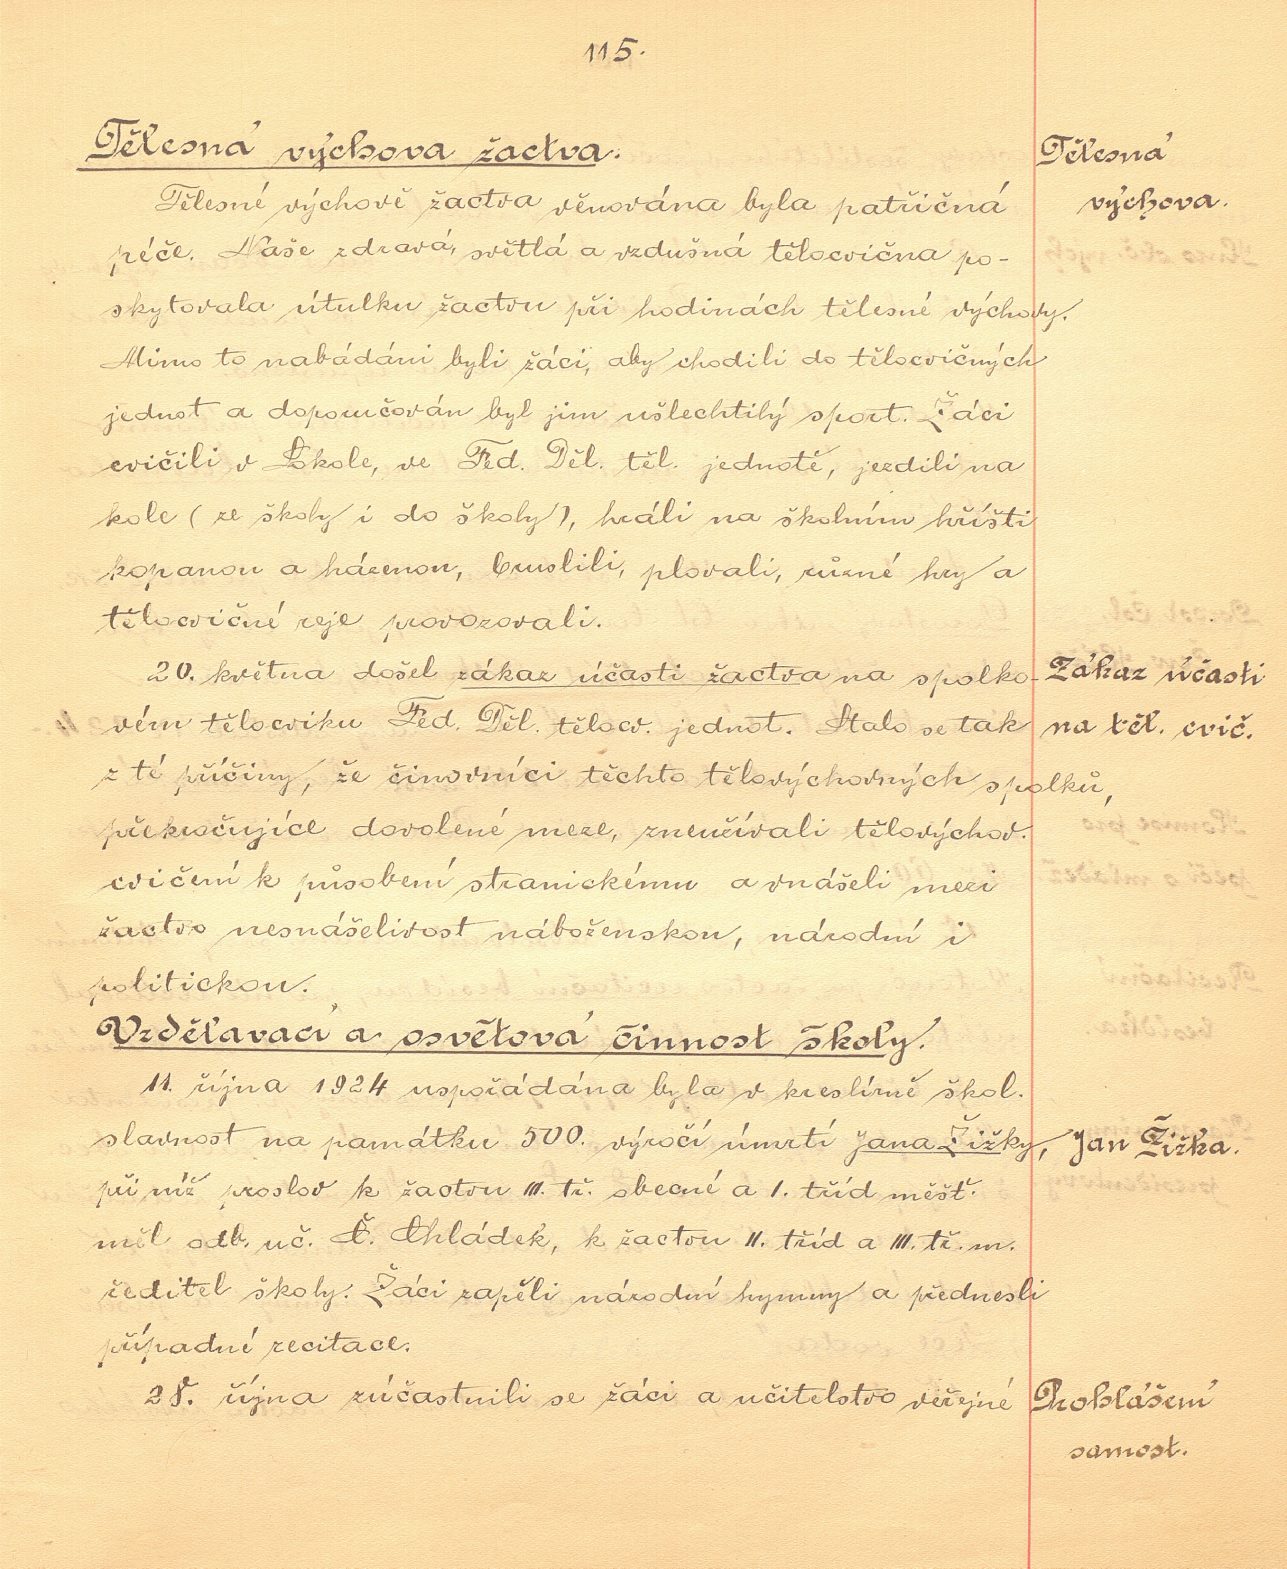 115.
Tělesná výchova žactva.
Tělesná
výchova.
Tělesné výchově žactva věnována byla patřičná
péče. Naše zdravá, světlá a vzdušná tělocvična po-
skytovala útulku žactvu při hodinách tělesné výchovy.
Mimo to nabádáni byli žáci, aby chodili do tělocvičných
jednot a doporučován byl jim ušlechtilý sport. Žáci
cvičili v Sokole, ve Fed. Děl. těl. jednotě, jezdili na
kole (ze školy i do školy), hráli na školním hřišti
kopanou a házenou, bruslili, plovali, různé hry a
tělocvičné reje provozovali.
20. května došel zákaz účasti žactva na spolko-
Zákaz účasti
vém tělocviku Fed. Děl. tělocv. jednot. Stalo se tak
na těl. cvič.
z té příčiny, že činovníci těchto tělovýchovných spolků,
překročujíce dovolené meze, zneužívali tělovýchov.
cvičení k působení stranickému a vnášeli mezi
žactvo nesnášelivost náboženskou, národní i
politickou.
Vzdělavací a osvětová činnost školy.
11. října 1924 uspořádána byla v kreslírně škol.
slavnost na památku 500. výročí úmrtí Jana Žižky,
Jan Žižka.
při níž proslov k žactvu III. tř. obecné a I. tříd měšť.
měl odb. uč. Č. Chládek, k žactvu II. tříd a III. tř. m.
ředitel školy. Žáci zapěli národní hymny a přednesli
případné recitace.
28. října zúčastnili se žáci a učitelstvo veřejné
Prohlášení
samost.